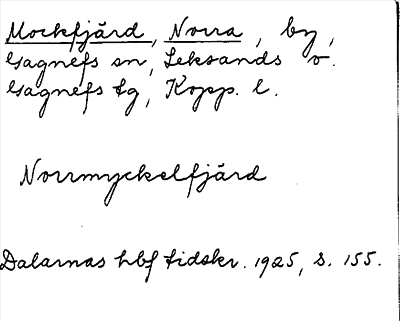 Mockfjärd, Norra, by,
Gagnefs sn, Leksands o.
Gagnefs tg, Kopp. l.
Norrmyckelfjärd
Dalarnas hbf tidskr. 1925, s. 155.